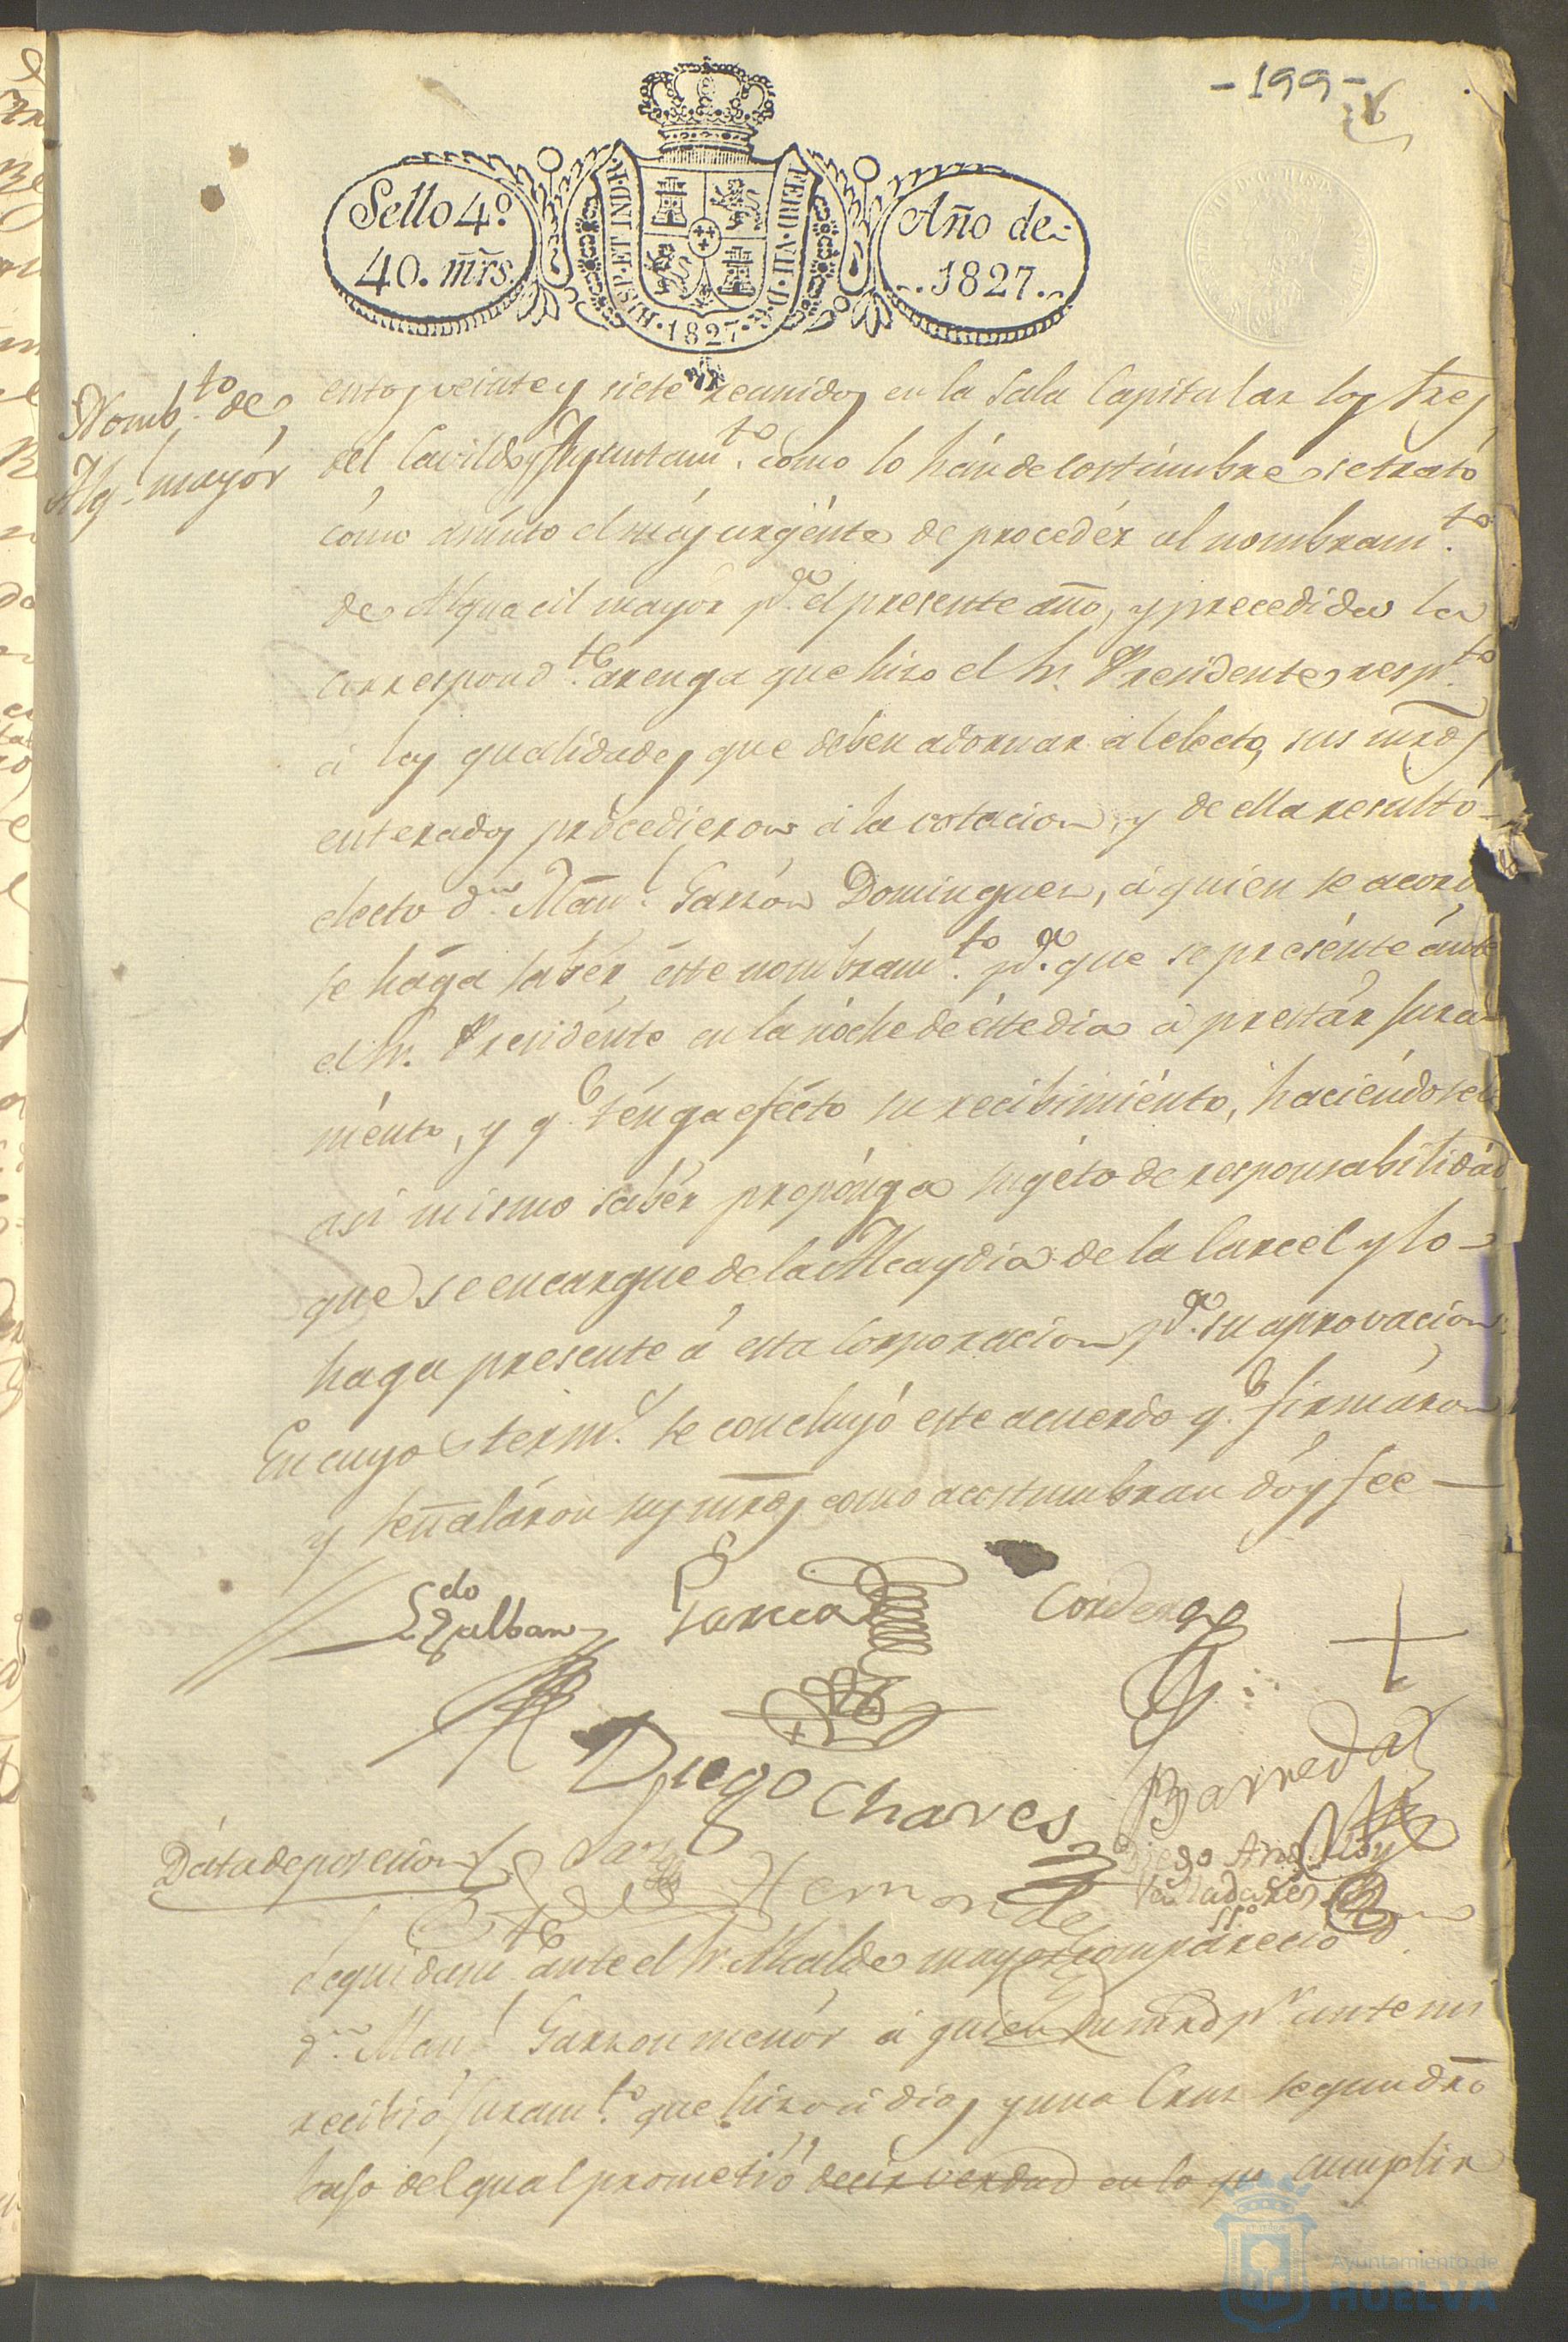 -199-
Sello 4.º
40. mrs.
HISP. ET IND. R.
FERD. VII. D. G.
·1827·
Año de
1827.
Nomb.to de
Alg.l mayór
entos veinte y siete reunidos en la Sala Capitular los Sres
del Cavildo y Ayuntam.to como lo hán de costúmbre se trató
cómo asúnto el más urgénte de procedér al nombram.to
de Alguacil mayor p.a el presente año, y precedida la
correspond.te arenga que hizo el Sr. Presidente resp.to
á las qualidades que deben adornar al electo, sus mrds
enterados procedieron á la votacion, y de ella resultó
electo d.n Man.l Garzón Dominguez, á quien se acord
se hága sabér éste nombram.to p.a que se presénte ánte
el Sr. Presidénte en la nóche de éste dia á prestár jura
ménto, y q.e ténga efécto su recibimiénto, haciéndosele
asi mismo sabér propónga sugéto de responsabilidád
que se encargue de la Alcaydia de la Carcel y lo
haga presente á esta Corporacion p.a su aprovacion
En cuyos term.s se concluyó este acuerdo q.e firmáron
y señaláron sus mrds como acostumbran dóy fee
L.do Galban
Garcia
Cordero
Diego Chaves
Barreda
Hernandez
Diego Ant.
Valladares
Dáta de posesion
Seguidam.te ánte el Sr. Alcalde mayor comparecio
d.n Man.l Garzon menór á quien su mrd p.r ante mi
recibió juram.to que hizo á dios y una Cruz segun dro
bajo del qual prometió decir verdad en lo qe cumplir
Ayuntamiento de
HUELVA